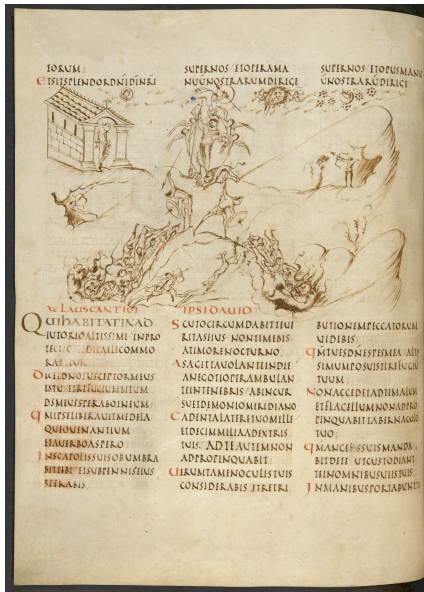 EORUM:
ETSITSPLENDORDNIDINRI
SUPERNOS ETOPERAMA
NUUNOSTRARUMDIRIGE
SUPERNOS ETOPUSMANU
UNOSTRARUDIRIGE
XC LAUSCANTICI IPSIDAUID
QUIHABITATINAD
IUTORIOALTISSIMI INPRO
TECTIO DICAELICOMMO
RABITUR
DICETDNO SUSCEPTORMEUS
ESTU ETREFUGIUMMEUM
DSMEUSSPERABOINEUM
QMIPSELIBERAUITMEDELA
QUEOUENANTIUM
ETAUERBOASPERO
INSCAPULISSUISOBUMBRA
BITTIBI ETSUBPENNISEIUS
SPERABIS
SCUTOCIRCUMDABITTEUE
RITASEIUS NONTIMEBIS
ATIMORENOCTURNO
ASAGITTAUOLANTEINDIE
ANEGOTIOPERAMBULAN
TEINTENEBRIS ABINCUR
SUETDEMONIOMERIDIANO
CADENTALATERETUOMILLE
ETDECEMMILIAADEXTRIS
TUIS ADTEAUTEMNON
ADPROPINQUABIT
UERUMTAMENOCULISTUIS
CONSIDERABIS ETRETRI
BUTIONEMPECCATORUM
UIDEBIS
QMTUESDNESPESMEA ALTIS
SIMUMPOSUISTIREFUGIU
TUUM
NONACCEDETADTEMALUM
ETFLAGELLUMNONADPRO
PINQUABITTABERNACULO
TUO
QMANGELISSUISMANDA
BITDETE UTCUSTODIANT
TEINOMNIBUSUIISTUIS
INMANIBUSPORTABUNTTE